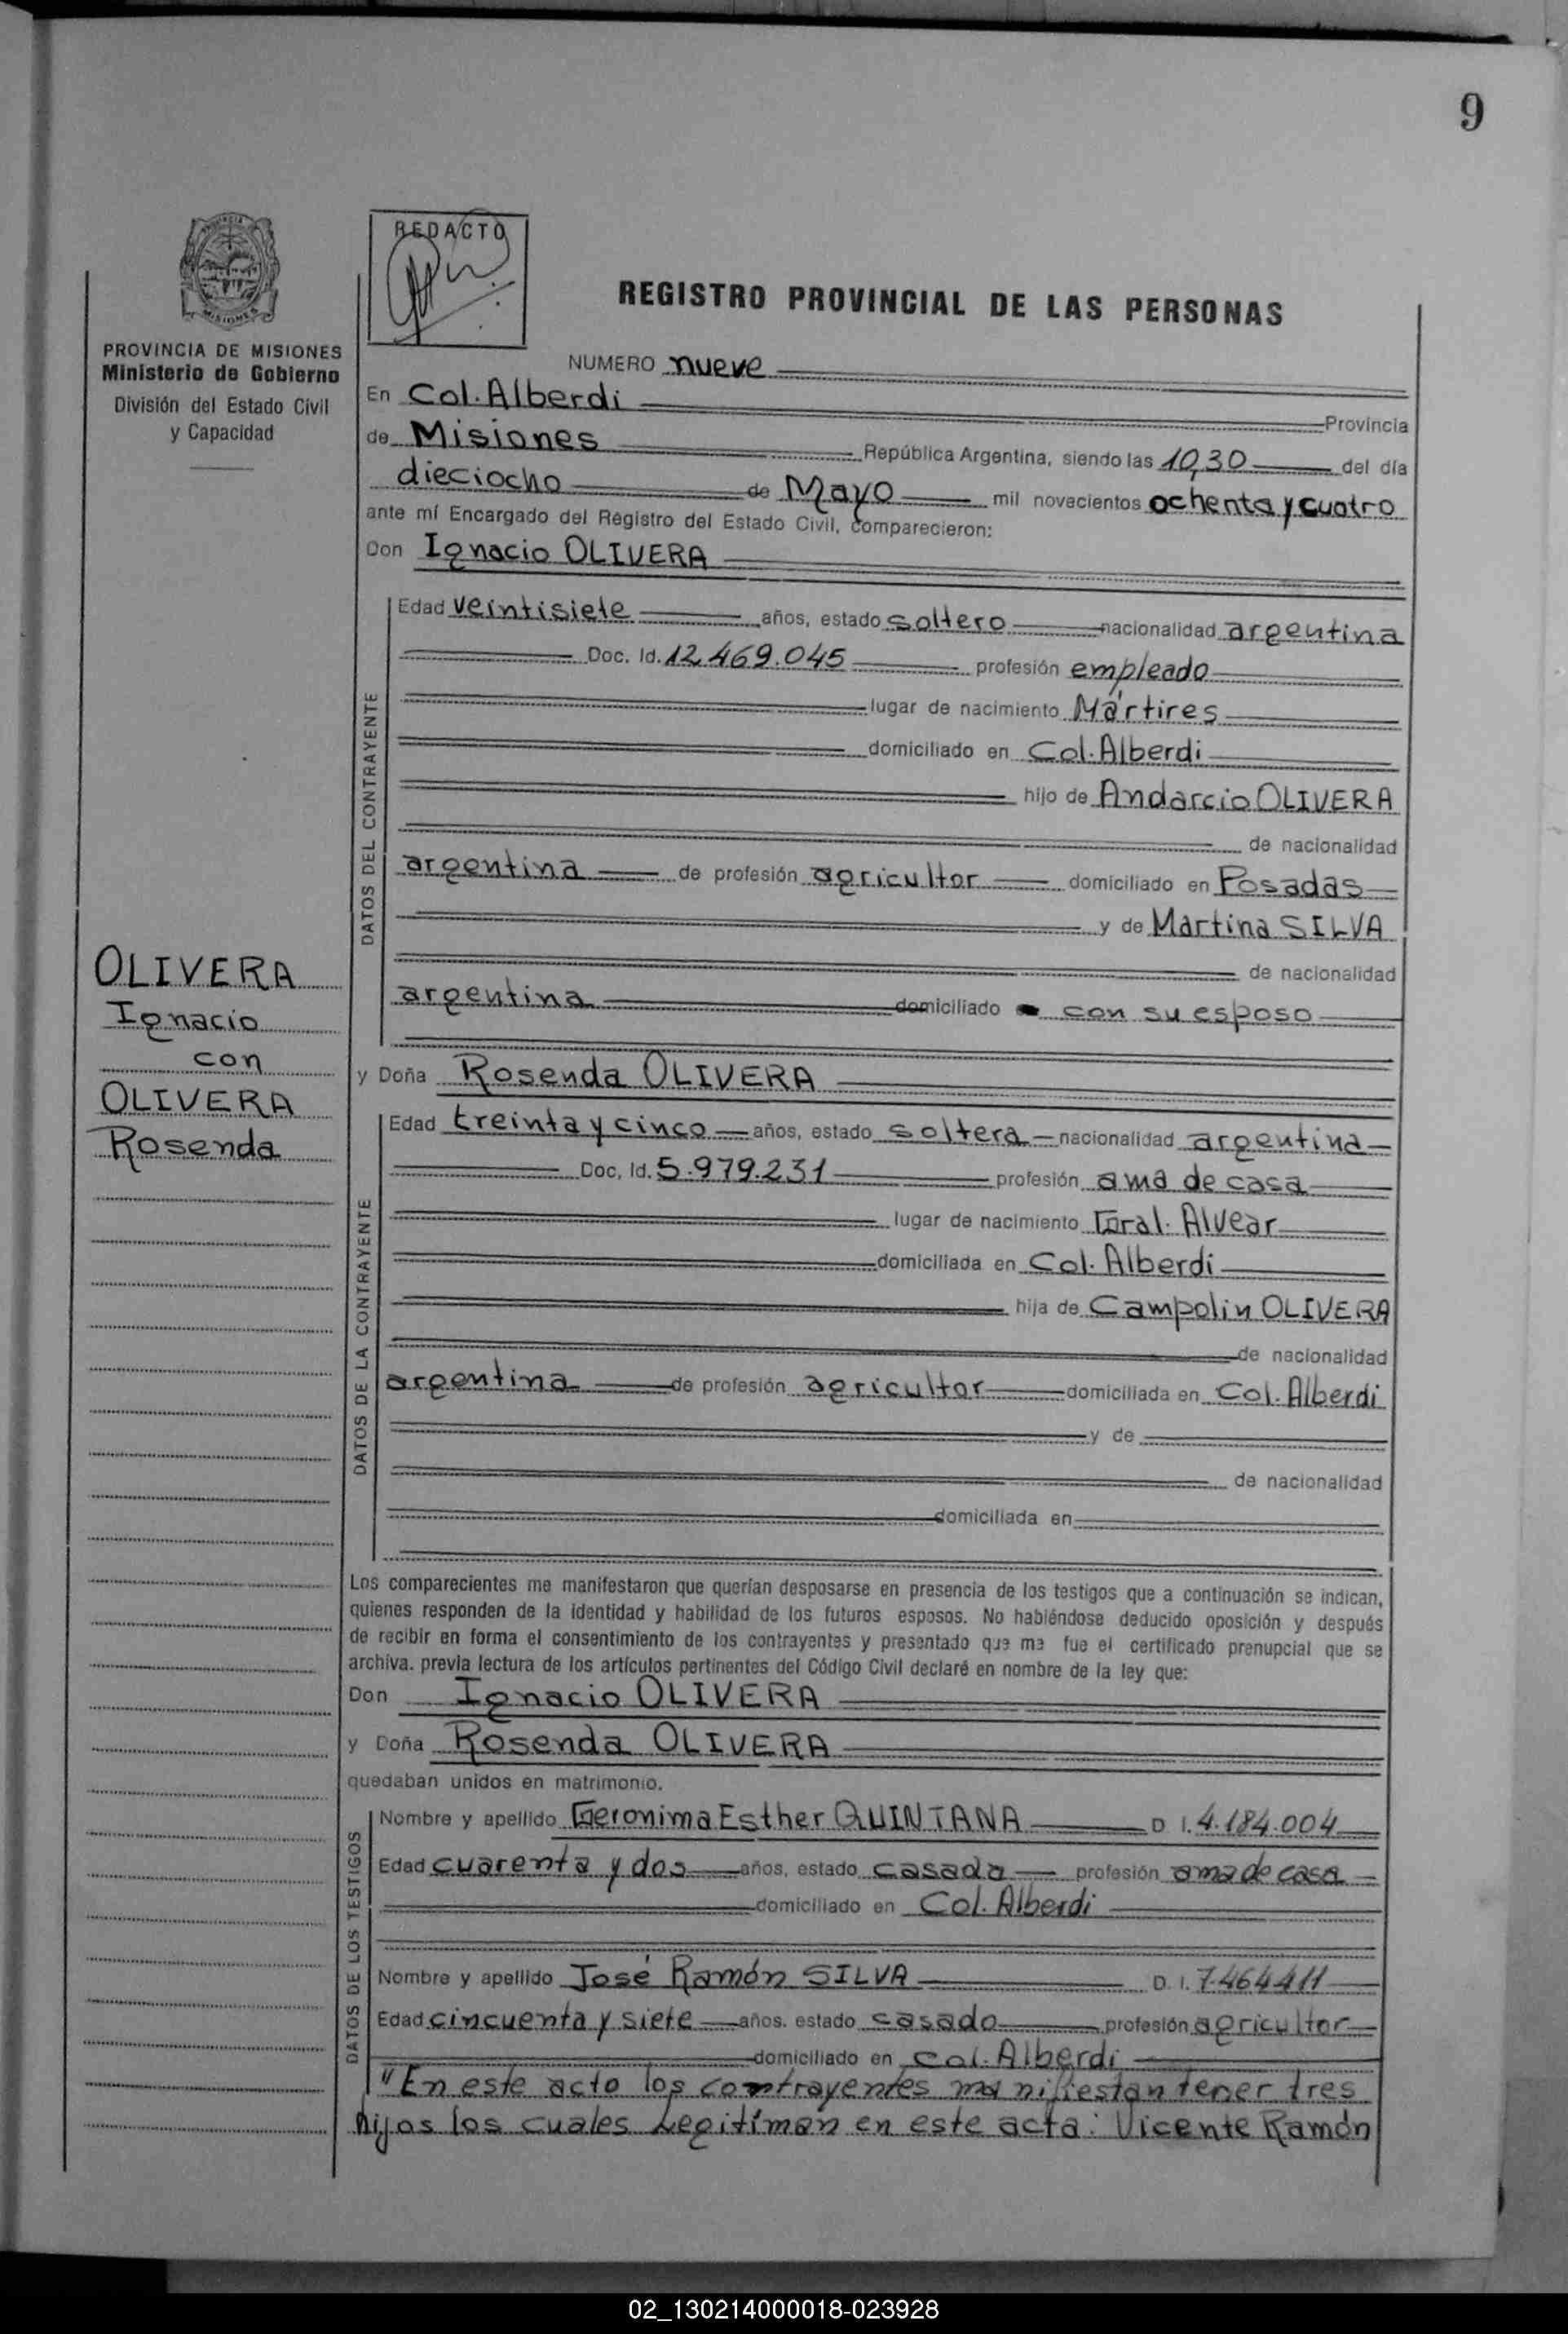 9
PROVINCIA
MISIONES
PROVINCIA DE MISIONES
Ministerio de Gobierno
División del Estado Civil
y Capacidad
REDACTO
REGISTRO PROVINCIAL DE LAS PERSONAS
NUMERO nueve
En Col. Alberdi Provincia
de Misiones República Argentina, siendo las 10,30 del día
dieciocho de Mayo mil novecientos ochenta y cuatro
ante mí Encargado del Registro del Estado Civil, comparecieron:
Don Ignacio OLIVERA
DATOS DEL CONTRAYENTE
Edad veintisiete años, estado soltero nacionalidad argentina
Doc. Id. 12.469.045 profesión empleado
lugar de nacimiento Mártires
domiciliado en Col. Alberdi
hijo de Andarcio OLIVERA
de nacionalidad
argentina de profesión agricultor domiciliado en Posadas
y de Martina SILVA
de nacionalidad
argentina domiciliado con su esposo
OLIVERA
Ignacio
con
OLIVERA
Rosenda
y Doña Rosenda OLIVERA
DATOS DE LA CONTRAYENTE
Edad treinta y cinco años, estado soltera nacionalidad argentina
Doc. Id. 5.979.231 profesión ama de casa
lugar de nacimiento Gral. Alvear
domiciliada en Col. Alberdi
hija de Campolin OLIVERA
de nacionalidad
argentina de profesión agricultor domiciliada en Col. Alberdi
y de
de nacionalidad
domiciliada en
Los comparecientes me manifestaron que querían desposarse en presencia de los testigos que a continuación se indican,
quienes responden de la identidad y habilidad de los futuros esposos. No habiéndose deducido oposición y después
de recibir en forma el consentimiento de los contrayentes y presentado que me fue el certificado prenupcial que se
archiva. previa lectura de los artículos pertinentes del Código Civil declaré en nombre de la ley que:
Don Ignacio OLIVERA
y Doña Rosenda OLIVERA
quedaban unidos en matrimonio.
DATOS DE LOS TESTIGOS
Nombre y apellido Geronima Esther QUINTANA D. I. 4.184.004
Edad cuarenta y dos años, estado casada profesión ama de casa
domiciliado en Col. Alberdi
Nombre y apellido José Ramón SILVA D. I. 7.464411
Edad cincuenta y siete años. estado casado profesión agricultor
domiciliado en Col. Alberdi
"En este acto los contrayentes manifiestan tener tres
hijos los cuales Legitiman en este acta: Vicente Ramón
02_130214000018-023928